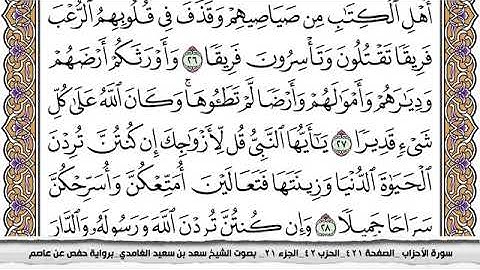 أَهْلِ ٱلْكِتَٰبِ مِن صَيَاصِيهِمْ وَقَذَفَ فِى قُلُوبِهِمُ ٱلرُّعْبَ
فَرِيقًا تَقْتُلُونَ وَتَأْسِرُونَ فَرِيقًا ٢٦ وَأَوْرَثَكُمْ أَرْضَهُمْ
وَدِيَٰرَهُمْ وَأَمْوَٰلَهُمْ وَأَرْضًا لَّمْ تَطَـُٔوهَا ۚ وَكَانَ ٱللَّهُ عَلَىٰ كُلِّ
شَىْءٍ قَدِيرًا ٢٧ يَٰٓأَيُّهَا ٱلنَّبِىُّ قُل لِّأَزْوَٰجِكَ إِن كُنتُنَّ تُرِدْنَ
ٱلْحَيَوٰةَ ٱلدُّنْيَا وَزِينَتَهَا فَتَعَالَيْنَ أُمَتِّعْكُنَّ وَأُسَرِّحْكُنَّ
سَرَاحًا جَمِيلًا ٢٨ وَإِن كُنتُنَّ تُرِدْنَ ٱللَّهَ وَرَسُولَهُۥ وَٱلدَّارَ
سورة الأحزاب _الصفحة ٤٢١_ الحزب ٤٢_ الجزء ٢١_ بصوت الشيخ سعد بن سعيد الغامدي_برواية حفص عن عاصم